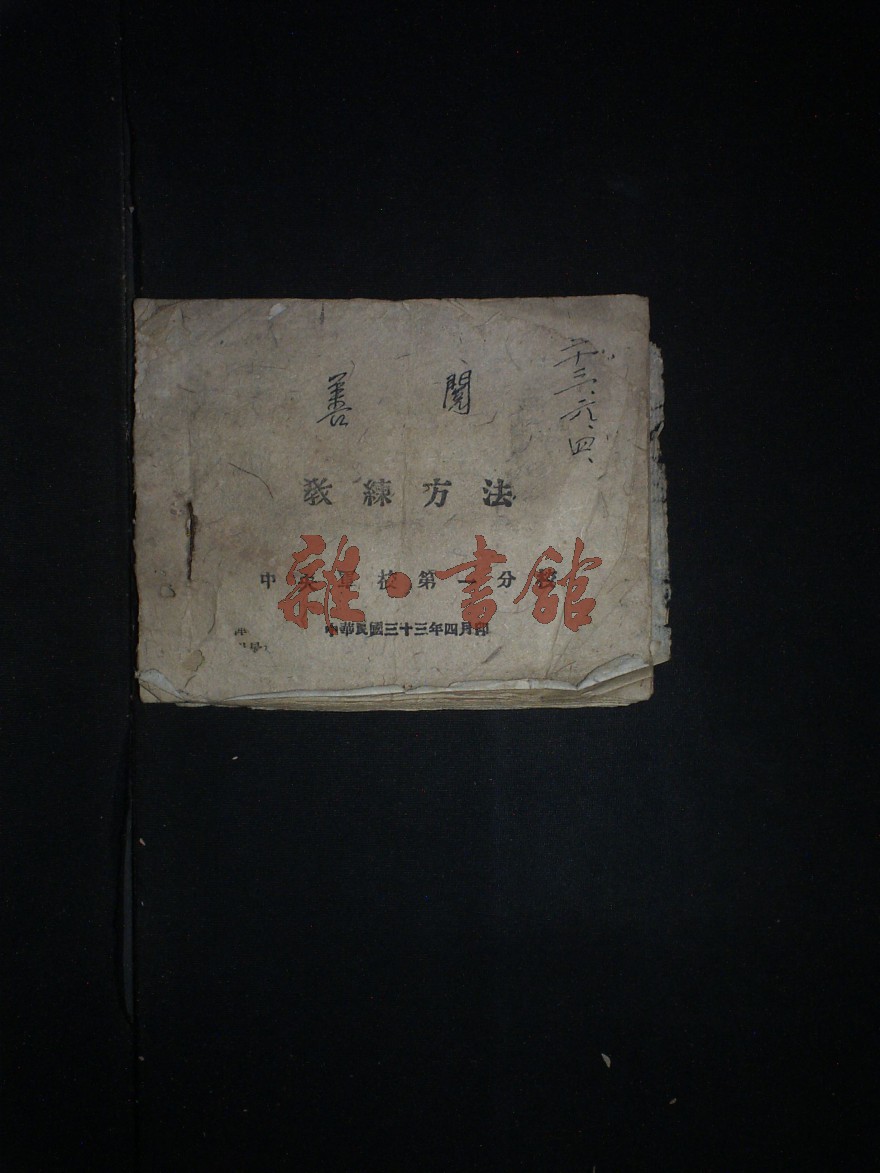 善閱
三十三、六、四、
教練方法
中央軍校第一分校
雜·書館
中華民國三十三年四月印